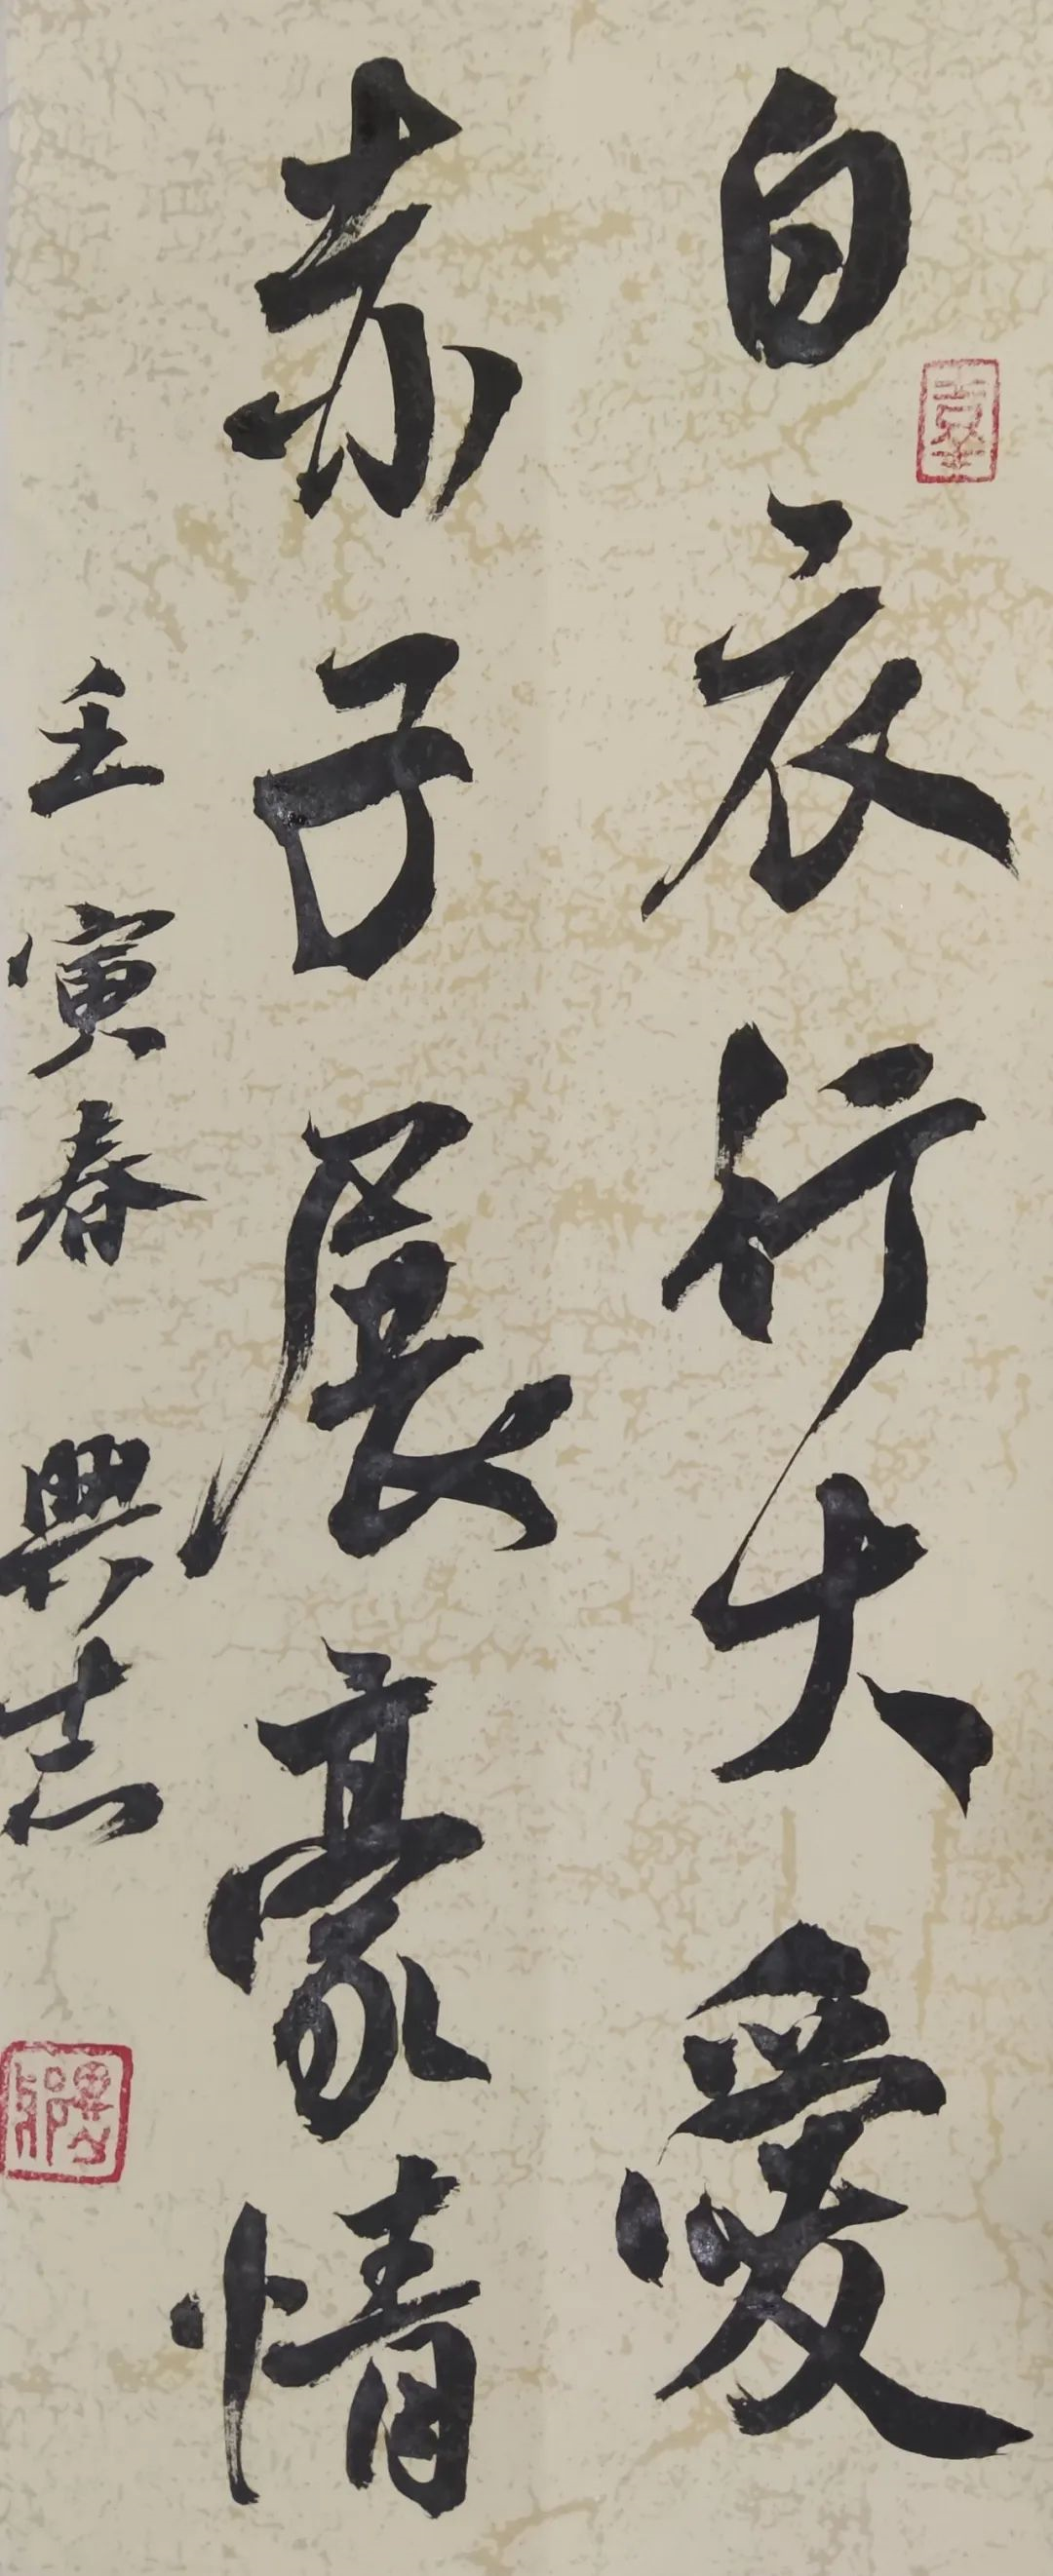 白衣行大愛
赤子展豪情
壬寅春 興志